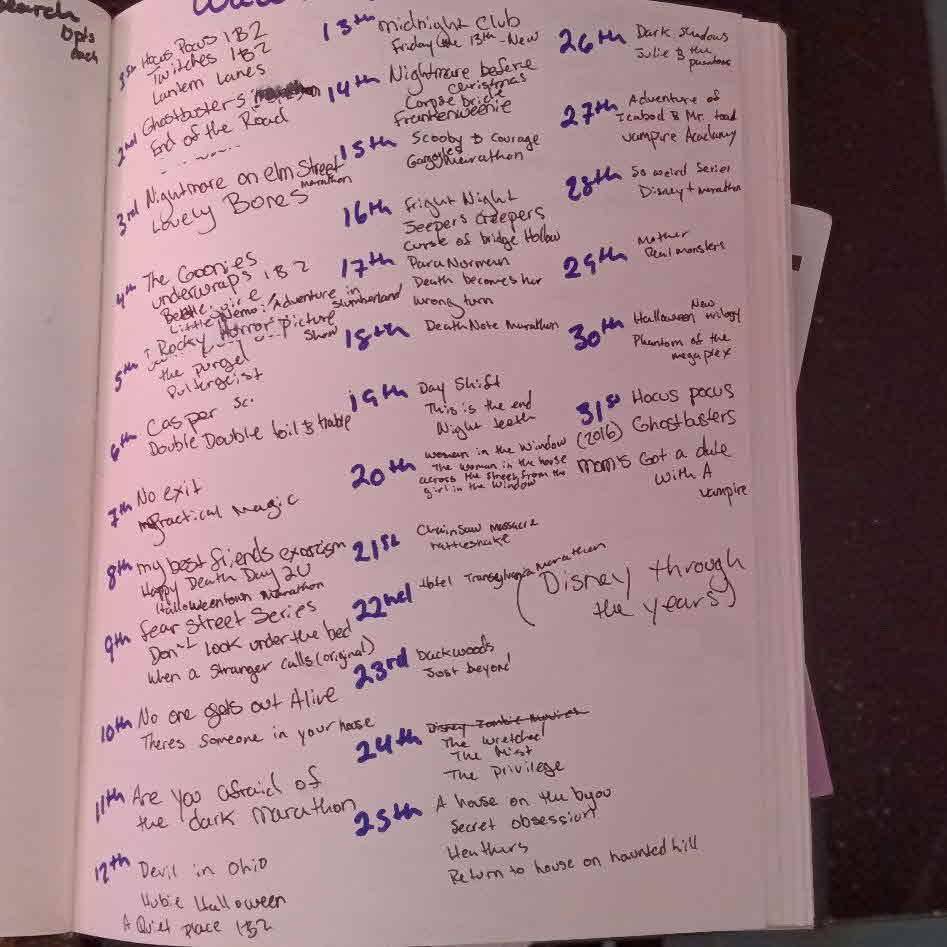 search
10pts
each
1st Hocus Pocus 1&2
Twitches 1&2
Lantern Lanes
2nd Ghostbusters
End of the Road
3rd Nightmare on elm Street
marathon
Lovely Bones
4th The Goonies
underwraps 1&2
Little Nemo: Adventure in
Slumberland
5th Rocky Horror picture
Show
the purge
Poltergeist
6th Casper
Double Double toil & trouble
7th No exit
Practical Magic
8th my best friends exorcism
Happy Death Day 2U
Halloweentown Marathon
9th fear Street Series
Don't look under the bed
when a stranger calls (original)
10th No one gets out Alive
Theres Someone in your house
11th Are you afraid of
the dark Marathon
12th Devil in Ohio
Hubie Halloween
A Quiet place 1&2
13th midnight Club
Friday the 13th - New
14th Nightmare before
Christmas
Corpse bride
Frankenweenie
15th Scooby & Courage
Gargoyles marathon
16th Fright Night
Jeepers Creepers
Curse of bridge Hollow
17th Para Norman
Death becomes her
wrong turn
18th Death Note Marathon
19th Day Shift
This is the end
Night teeth
20th woman in the Window
The woman in the house
across the street from the
girl in the window
21st Chainsaw Massacre
rattlesnake
22nd Hotel Transylvania marathon
23rd Backwoods
Just beyond
24th Disney Zombie Movies
The wretched
The Mist
The Privilege
25th A house on the byou
Secret obsession
Heathers
Return to house on haunted hill
26th Dark Shadows
Julie & the
phantoms
27th Adventure of
Icabod & Mr. toad
vampire Academy
28th So weird Series
Disney+ marathon
29th Mother
Real monsters
30th Halloween New trilogy
Phantom of the
megaplex
31st Hocus pocus
(2016) Ghostbusters
Mom's Got a date
with A
vampire
(Disney through
the years)